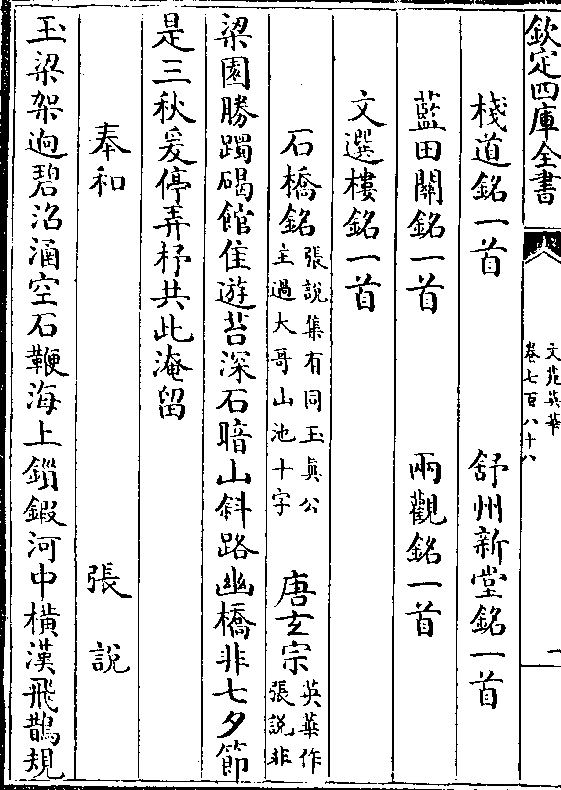 欽定四庫全書
文苑英華
卷七百八十八
一
棧道銘一首 舒州新堂銘一首
藍田關銘一首 兩觀銘一首
文選樓銘一首
石橋銘 張說集有同玉眞公主過大哥山池十字 唐玄宗 英華作張說非
梁園勝躅碣館佳遊苔深石暗山斜路幽橋非七夕節
是三秋爰停弄杼共此淹留
奉和 張說
玉梁架逈碧沼涵空石鞭海上鎻鍜河中橫漢飛鵲規